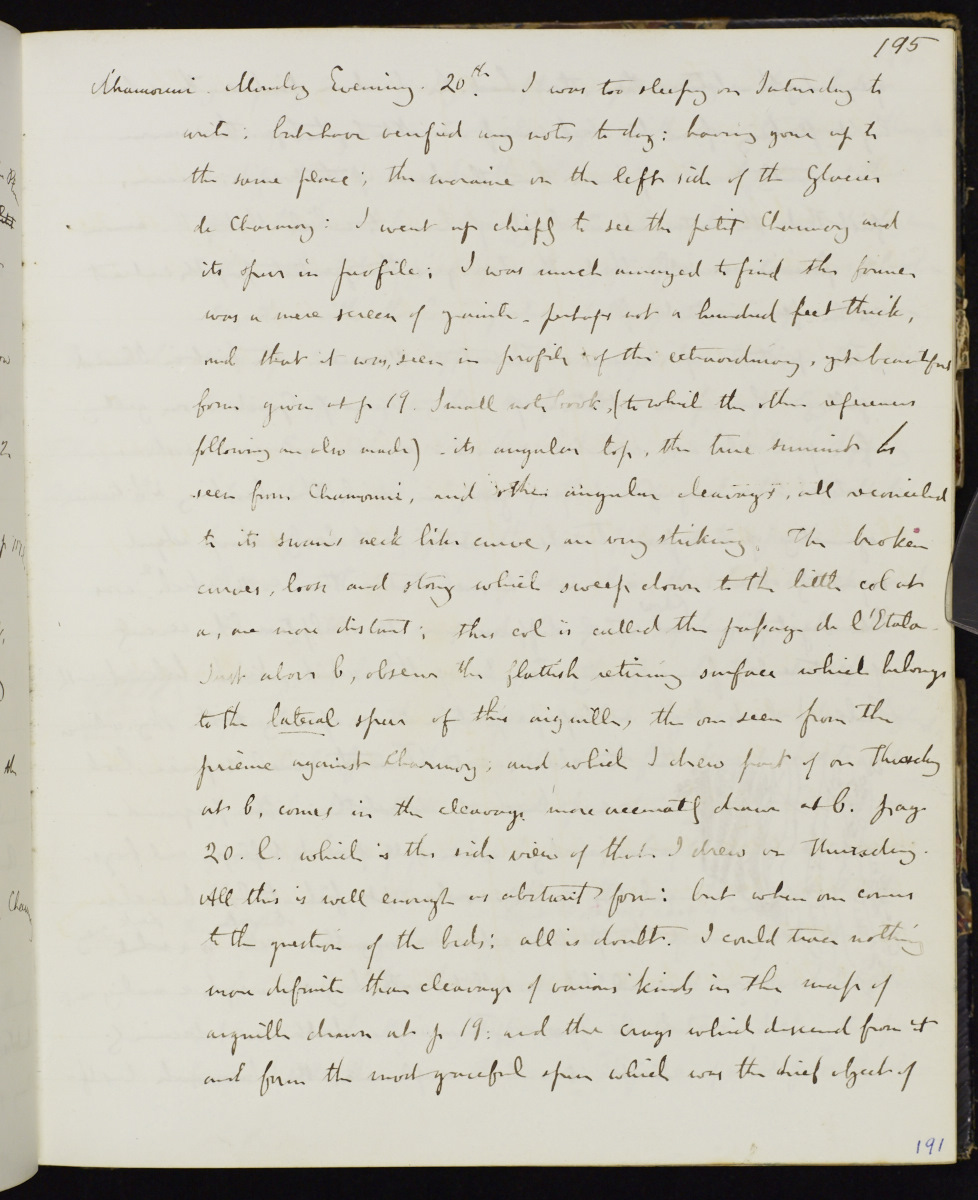 195
Chamouni. Monday Evening. 20th. I was too sleepy on Saturday to
write; but have verified my notes today: having gone up to
the same place; the moraine on the left side of the Glacier
de Charmoz: I went up chiefly to see the petit Charmoz and
its spur in profile; I was much amazed to find the former
was a mere screen of granite - perhaps not a hundred feet thick,
and that it was, seen in profile of this extraordinary, yet beautiful
form given at p 19. Small note book, (to which the other references
following are also made) - its angular top, the true summit as
seen from Chamouni, and other angular cleavages, all reconciled
to its swan's neck like curve, are very striking. The broken
curves, loose and stony which sweep down to the little col at
a, are more distant; this col is called the passage de l'Etala.
Just above b, observe the flattish retiring surface which belongs
to the lateral spur of this aiguille, the one seen from the
against Charmoz; and which I drew part of on Thursday
at b, comes in the cleavage more accurately drawn at b. page
20. l. which is the side view of that I drew on Thursday.
All this is well enough as abstract form: but when one comes
to the question of the beds; all is doubt. I could trace nothing
more definite than cleavage of various kinds in the mass of
aiguille drawn at p 19: and the crags which descend from it
and form the most graceful spur which was the chief object of
191